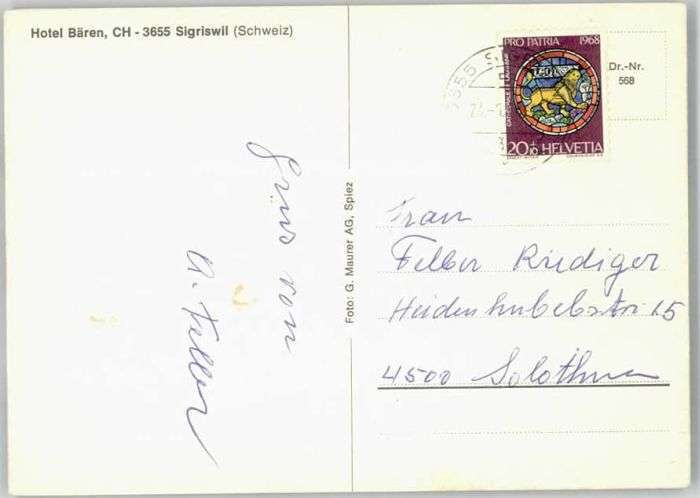 Hotel Bären, CH - 3655 Sigriswil (Schweiz)
PRO PATRIA 1968
Dr.-Nr.
568
20+10 HELVETIA
3655
Gruss von
A. Feller
Foto: G. Maurer AG, Spiez
Frau
Felber Rüdiger
Heidenhubelstr. 15
4500 Solothurn